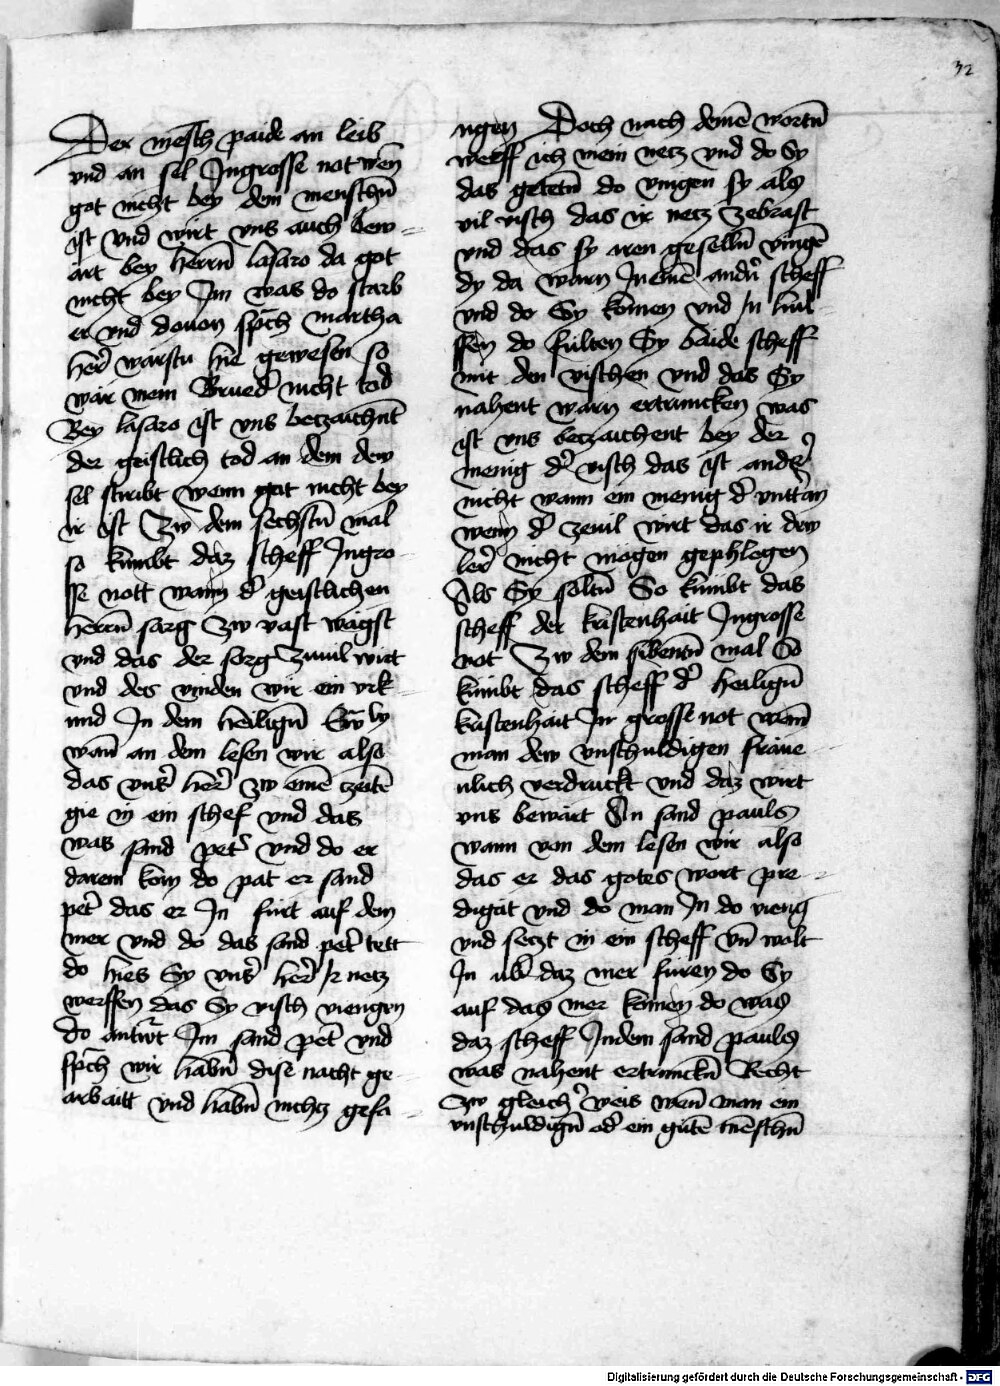 32
Der mēsch paide an leib
vnd an sel Jngrosse not wen̄
got nicht bey dem menschn̄
ist vnd wirt vns auch bew=
art bey herrn̄ lasaro da got
nicht bey Jm was do starb
er vnd douon sp̄ch martha
her̄ warstu hie gewesen so
wär mein Brued̄ nicht tod
Bey lasaro ist vns betzaichn̄t
der geistlich tod an dem dew
sel stribt wenn got nicht bey
ir ist Zw dem sechstn̄ mal
so kumbt daz scheff Jngro-
sse nott wann d̄ geistlichen
herrn̄ sorg Zw vast wägst
vnd das der sorg Zuuil wirt
vnd des vinden wir ein vrk-
und Jn dem heilign̄
wan̄ an dem lesen wir also
das vns̄ her̄ zw eine̅ zeite̅
gie in ein schef vnd das
was sand pet̄ vnd do er
darein kom do pat er sand
pet̄ das er Jn fürt auf dem
mer vnd do das sand pet̄ tett
do hies Sy vns̄ her̄ Jr netz
werffen das Sy visch viengen
do antw̄rt Jm sand pet̄ vnd
sp̄ch wir habn̄ dise nacht ge-
arbaitt vnd habn̄ nichtz gefa-
ngen Doch nach deine̅ wortn̄
werff ich mein netz vnd do Sy
das getetn̄ do vingen sy als
vil visch das ir netz zebrast
vnd das sy iren geselln̄ vinge̅
dy da warn Jn eine̅ andn̄ scheff
vnd do Sy komen vnd Jn hul-
ffen do fulten Sy baide scheff
mit den vischen vnd das Sy
nahent warn ertruncken was
ist vns betzaichent bey der
menig d̄ visch das ist anders
nicht wann ein menig d̄ vntt̄an
wenn d̄ zeuil wirt das ir dew
ler̄ nicht mogen gephlegen
Als Sy soltn̄ So kumbt das
scheff der kristenhait Jngrosse
not Zw dem sibentn̄ mal So
kumbt das scheff d̄ heilign̄
kristenhait Jn grosse not wann̄
man dew vnschuldigen fräue-
nlich verdruckt vnd daz wirt
vns bewärt An sand pauls
wann von dem lesen wir also
das er das gotes wort pre-
digät vnd do man Jn do vieng
vnd setzt in ein scheff vn̄ wolt
Jn ub̄ daz mer füren do Sy
auf das mer komen do was
daz scheff Jndem sand pauls
was nahent ertrunckn̄ Recht
Zw gleich̄ weis wen̄ man ein
vnschuldign̄ od̄ ein gute̅ me̅schn̄
Digitalisierung gefördert durch die Deutsche Forschungsgemeinschaft - DFG